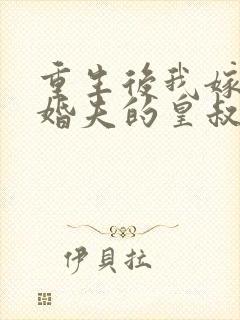 重生後我嫁
婚夫的皇叔
伊貝拉